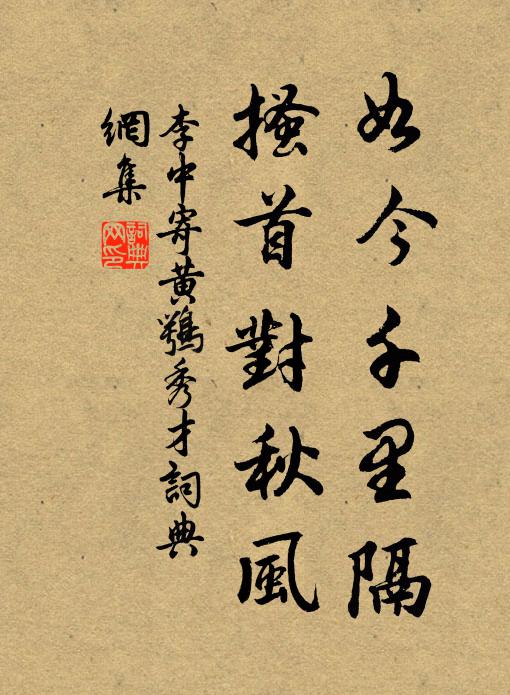 如今千里隔
搔首對秋風
李中寄黄鶚秀才詞典
網集
詞典网印